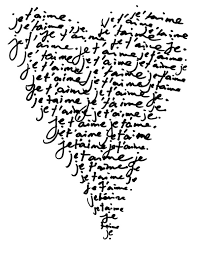 je t'aime. je t'aime
je t'aime. je t'aime je t'aime
je t'aime je t'aime je t'aime
je t'aime. je t'aime je t'aime je
je t'aime je t'aime je t'aime
je t'aime je t'aime je t'aime je
je t'aime je t'aime je t'aime
je t'aime je t'aime je t'aime
je t'aime je t'aime je t'aime
je t'aime je t'aime je
je t'aime je t'aime
je t'aime je t'aime
je t'aime je t'aime.
je t'aime je
je t'aime je
je t'aime je
je t'aime.
je t'aime
je t'aime
je
t'aime
je